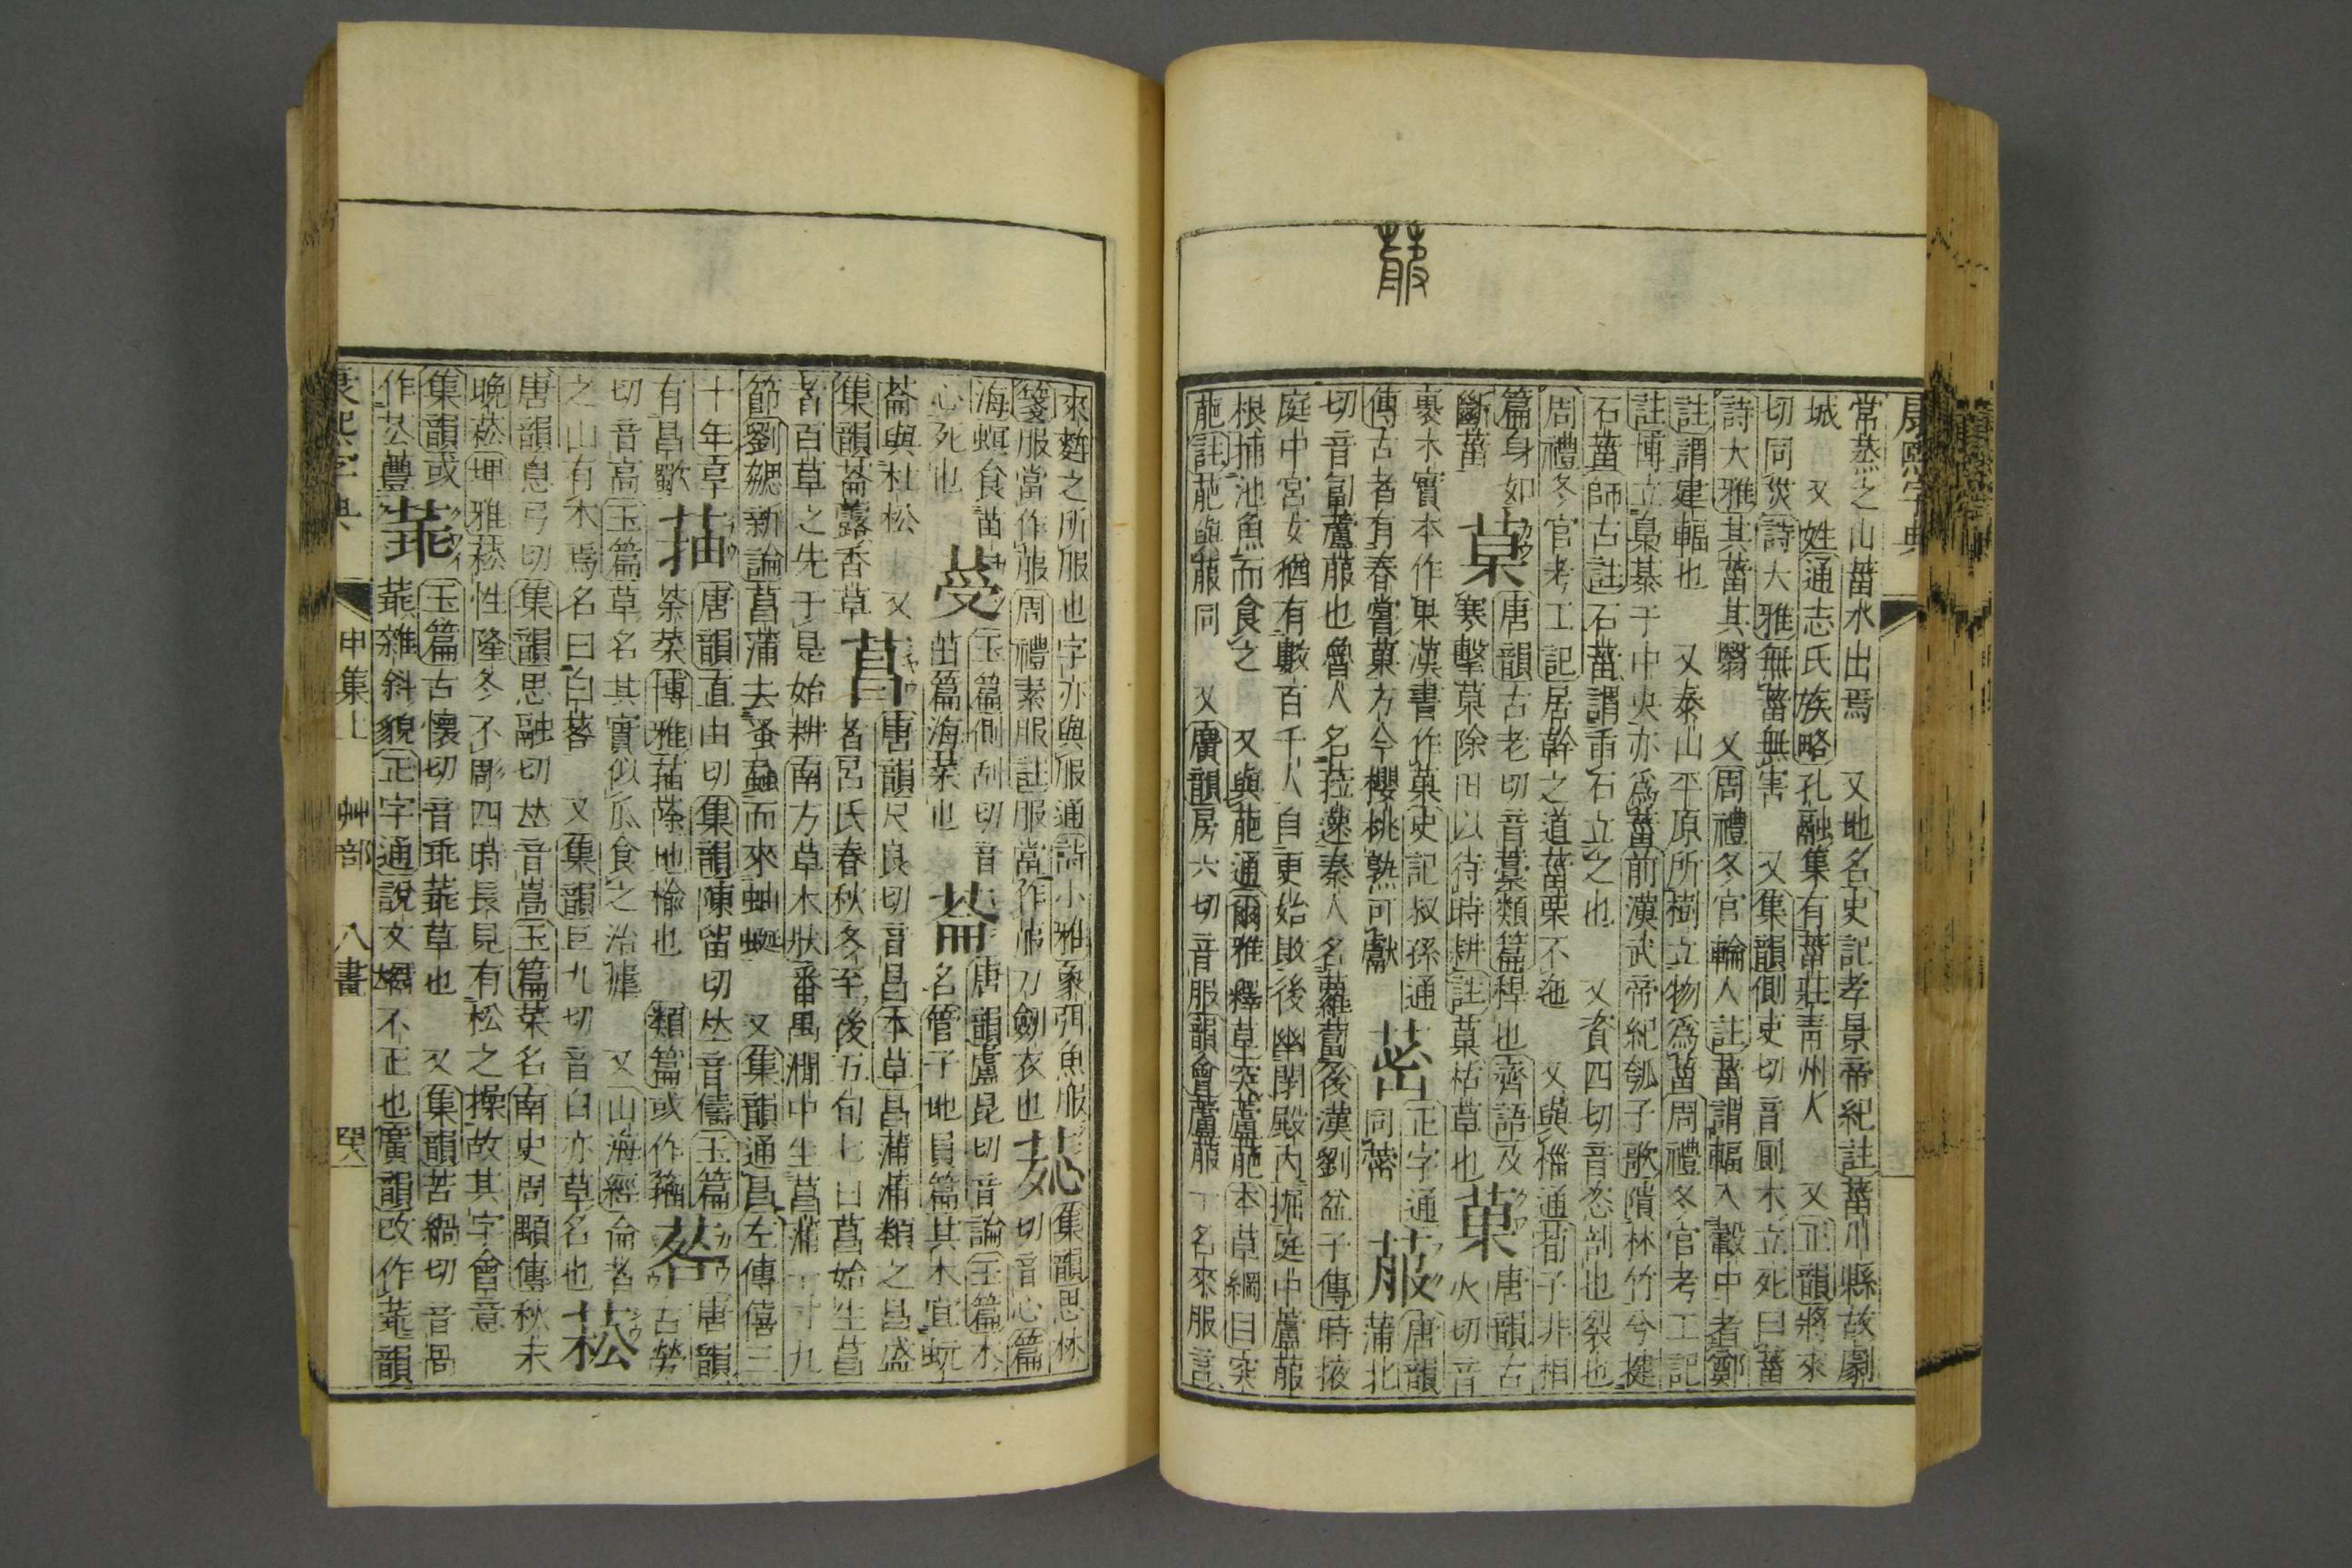 康熙字典
常蒸之山菑水出焉　又地名史記孝景帝紀註菑川縣故劇
城　又姓通志氏族略孔融集有菑莊青州人　又正韻將來
切同災詩大雅無菑無害　又集韻側吏切音厠木立死曰菑
詩大雅其菑其翳　又周禮冬官輪人註菑謂輻入轂中者鄭
註謂建輻也　又泰山平原所樹立物爲菑周禮冬官考工記
註博立梟棊于中央亦爲菑前漢武帝紀瓠子歌隤林竹兮揵
石菑師古註石菑謂臿石立之也　又資四切音恣剖也裂也
周禮冬官考工記居幹之道菑栗不迤　又與椔通荀子非相
篇身如斷菑
菒唐韻古老切音藁類篇稈也齊語及寒擊菒除田以待時耕註菒枯草也
菓唐韻古火切音裹木實本作果漢書作菓史記叔孫通傳古者有春嘗菓方今櫻桃熟可獻
䓛正字通同蔤
菔唐韻蒲北切音匐蘆菔也魯人名菈䔣秦人名蘿蔔後漢劉盆子傳時掖
庭中宮女猶有數百千人自更始敗後幽閉殿內掘庭中蘆菔
根捕池魚而食之　又與葩通爾雅釋草葖蘆萉本草綱目葖
萉註萉與菔同　又廣韻房六切音服韻會蘆菔一名來服言
來麰之所服也字亦與服通詩小雅象弭魚服
箋服當作菔周禮素服註服當作菔刀劒衣也
菍集韻思林切音心篇海螟食苗心死也
玉篇側刮切音茁篇海菜也
菕唐韻盧昆切音論玉篇木名管子地員篇其木宜蚖
菕與杜松　又集韻菕蕗香草
菖唐韻尺良切音昌本草昌蒲蒲類之昌盛
者呂氏春秋冬至後五旬七日菖始生菖
者百草之先于是始耕南方草木狀番禺澗中生菖蒲一寸九
節劉勰新論菖蒲去蚤蝨而來蚰蜒　又集韻通昌左傳僖三
十年享有昌歜
菗唐韻直由切集韻陳留切𠀤音儔玉篇菗蒢博雅菗蒢地楡也　類篇或作䕱
䓘唐韻古勞切音高玉篇草名其實似瓜食之治瘧　又山海經侖者
之山有木焉名曰白䓘　又集韻巨九切音臼亦草名也
菘唐韻息弓切集韻思融切𠀤音嵩玉篇菜名南史周顒傳秋末
晚菘埤雅菘性隆冬不彫四時長見有松之操故其字會意
集韻或作蘴
菲玉篇古懷切音乖菲草也　又集韻苦緺切音咼
菲雜斜貌正字通說文不正也廣韻改作菲韻
康熙字典
申集上　艸部　八畫